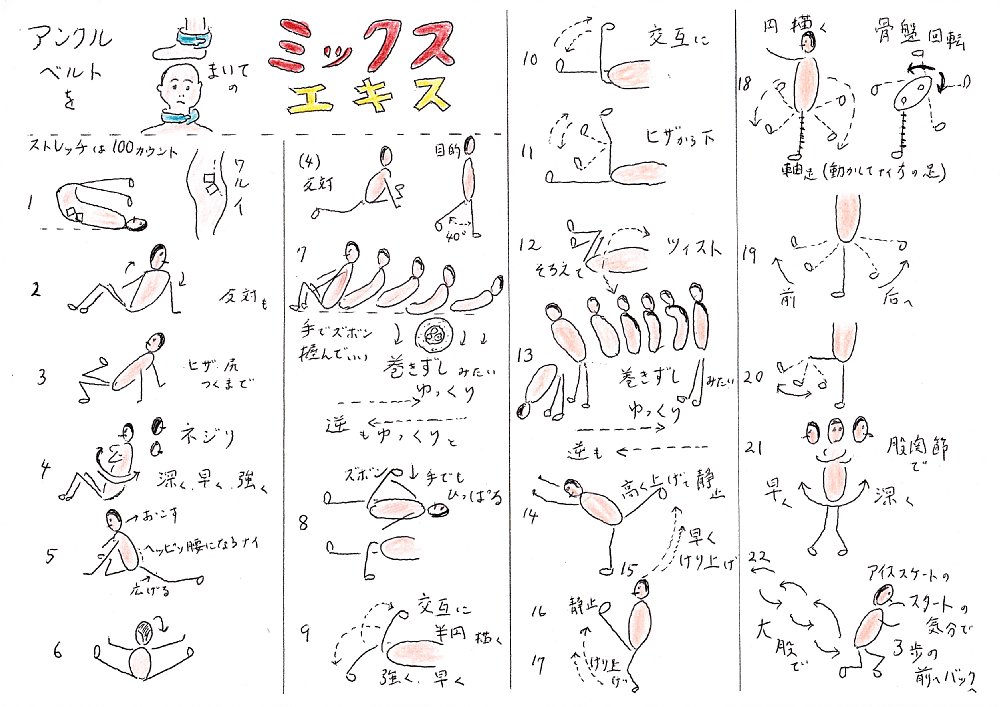 アンクル
ベルト
を
まいて
の
ミックス
エキス
ストレッチは100カウント
1
ワルイ
2
反対も
3
ヒザ、尻
つくまで
4
ネジリ
深く、早く、強く
5
おこす
ヘッピリ腰になるナイ
広げる
6
(4)
反対
目的
40°
7
手でズボン
握んでいい
巻きずしみたい
ゆっくり
逆もゆっくりと
8
ズボン
手でも
ひっぱる
9
交互に
半円描く
強く、早く
10
交互に
11
ヒザから下
12
そろえて
ツイスト
13
巻きずしみたい
ゆっくり
逆も
14
高く上げて静止
15
早く
けり上げ
16
静止
17
けり上げ
18
円描く
骨盤回転
軸足(動かしてナイ方の足)
19
前
后へ
20
21
股関節
で
早く
深く
22
アイススケートの
スタートの
気分で
大股で
3歩の
前へバックへ